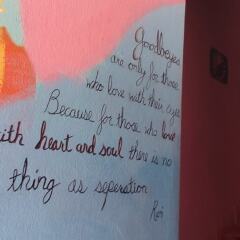 Goodbeyes
are only for those
who love with their eyes
Because for those who love
with heart and soul there is no
thing as seperation
Rumi